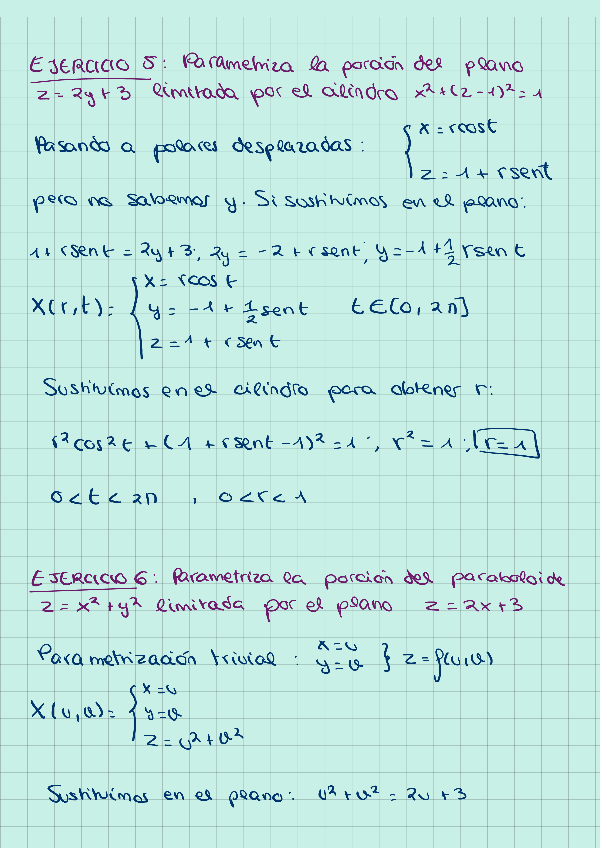 EJERCICIO 5: Parametriza la porción del plano
z = 2y + 3 limitada por el cilindro x² + (z - 1)² = 1
Pasando a polares desplazadas: { x = rcost
z = 1 + rsent
pero no sabemos y. Si sustituimos en el plano:
1 + rsent = 2y + 3; 2y = -2 + rsent; y = -1 + 1/2 rsent
X(r,t) = { x = rcost
y = -1 + 1/2 sent t ∈ [0, 2π]
z = 1 + rsent
Sustituimos en el cilindro para obtener r:
r²cos²t + (1 + rsent - 1)² = 1; r² = 1; r = 1
0 < t < 2π , 0 < r < 1
EJERCICIO 6: Parametriza la porción del paraboloide
z = x² + y² limitada por el plano z = 2x + 3
Parametrización trivial: x = u
y = v } z = f(u,v)
X(u,v) = { x = u
y = v
z = u² + v²
Sustituimos en el plano: u² + v² = 2u + 3